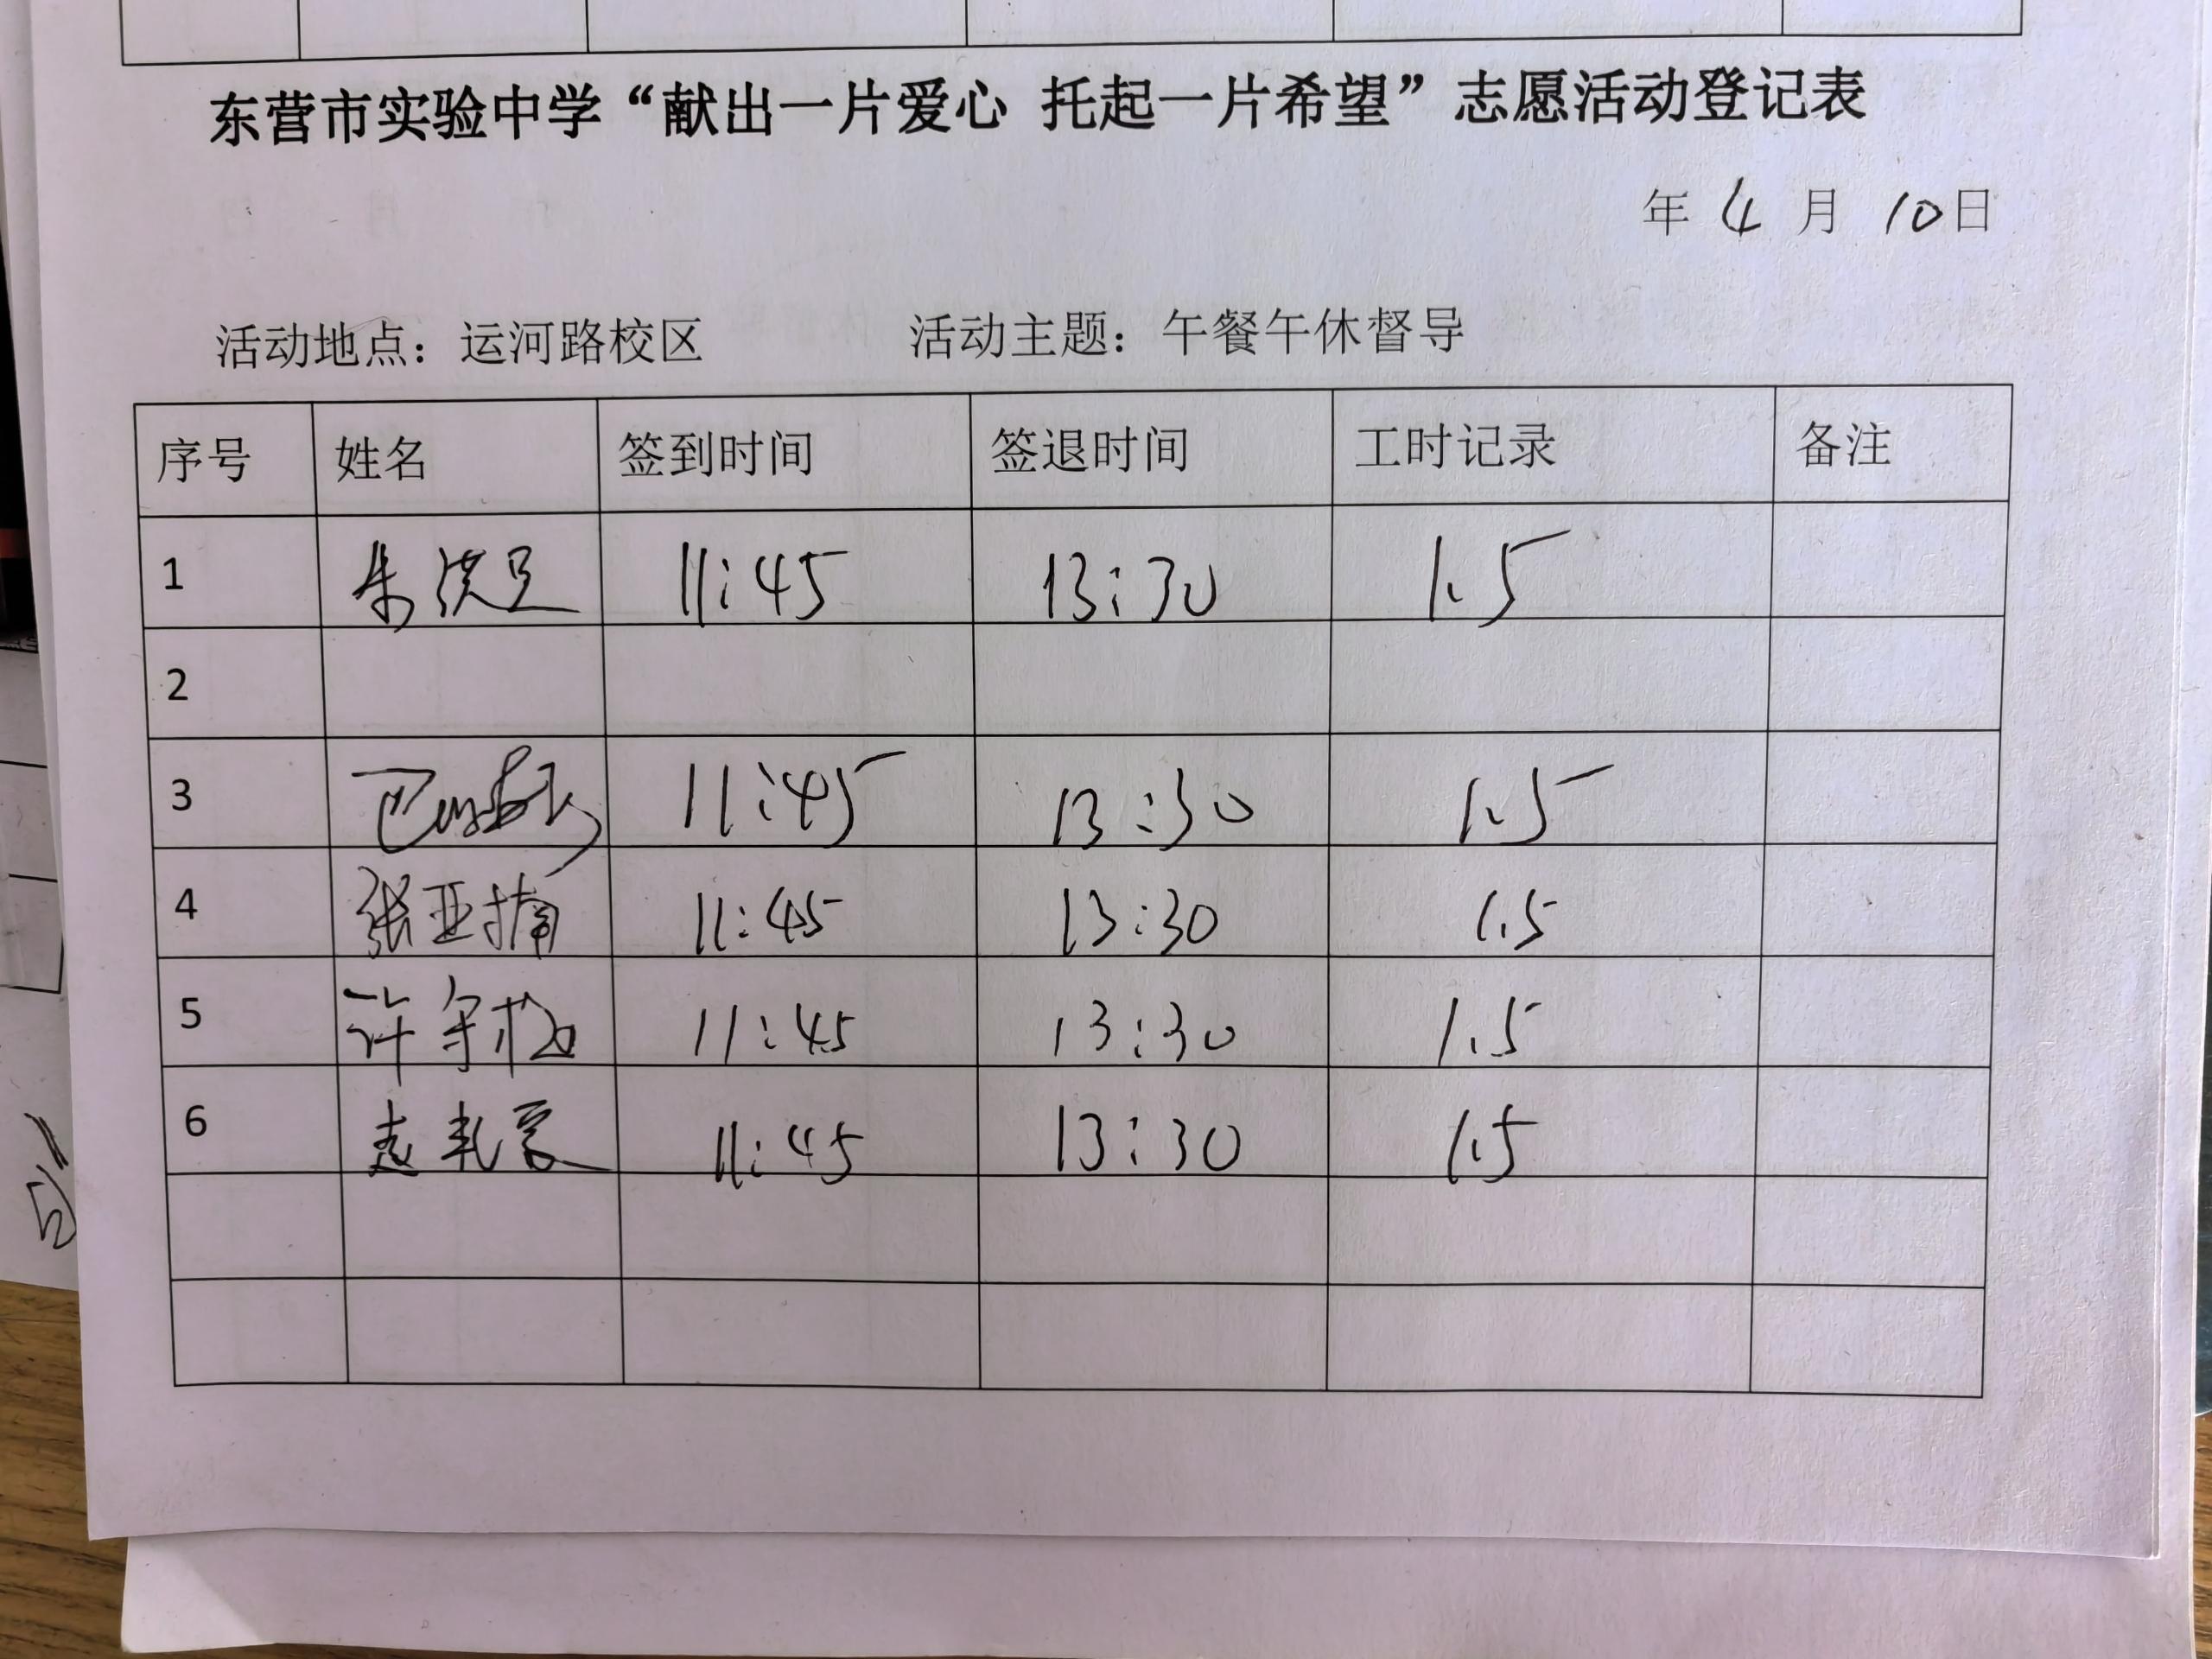 东营市实验中学“献出一片爱心 托起一片希望”志愿活动登记表
年 4 月 10日
活动地点：运河路校区 活动主题：午餐午休督导
序号 姓名 签到时间 签退时间 工时记录 备注
1 朱 11:45 13:30 1.5
2
3 11:45 13:30 1.5
4 张亚楠 11:45 13:30 1.5
5 许 11:45 13:30 1.5
6 赵 11:45 13:30 1.5